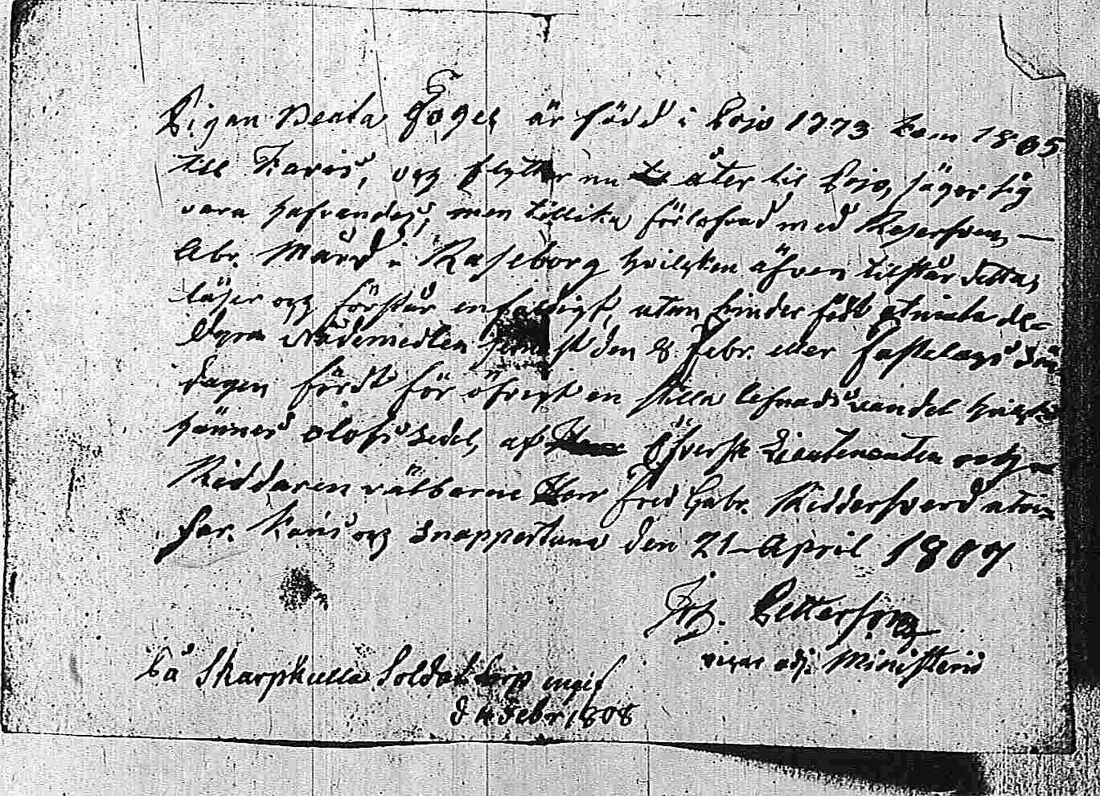 Pigan Beata är född i Pojo 1773 kom 1805
till Karis, och flyttar nu åter til Pojo, säger sig
vara hafvandes, men tillika förlofvad med
Abr. Mård i Raseborg hvilcken äfven tilstår detta,
läser och förstår enfaldigt, utan hinder
dyra Nådemedlen sist den 8 Febr. eller fastelags
dagen fördt för öfrigt en stilla lefnads vandel
hännes zedel, af Öfverste Lieutenanten och
Riddaren välborne Herr Fred Gabr. Riddersverd
Kariis och Snappertuna den 21 April 1807
Petterson
adj. Ministerii
På Skarpkulla Soldat torp
d 4 Febr 1808